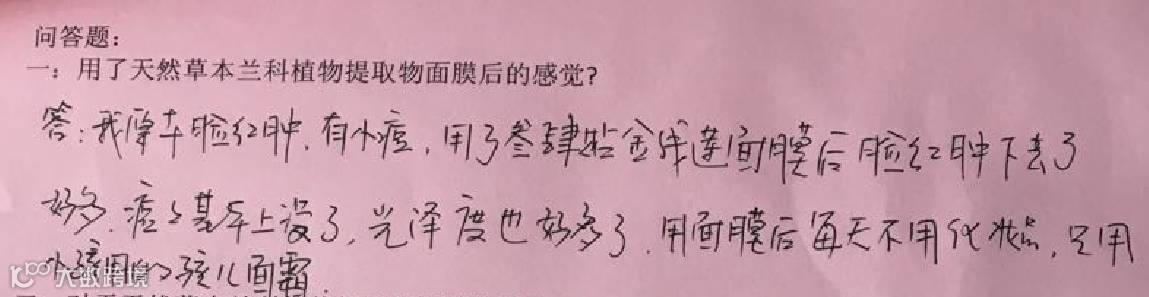 问答题：
一：用了天然草本兰科植物提取物面膜后的感觉？
答：我原本脸红肿，有小痘，用了叁肆粘金线莲面膜后脸红肿下去了
好多，痘痘基本上没了，光泽度也好多了，用面膜后每天不用化妆品，只用
小孩用的孩儿面霜。
大数跨境